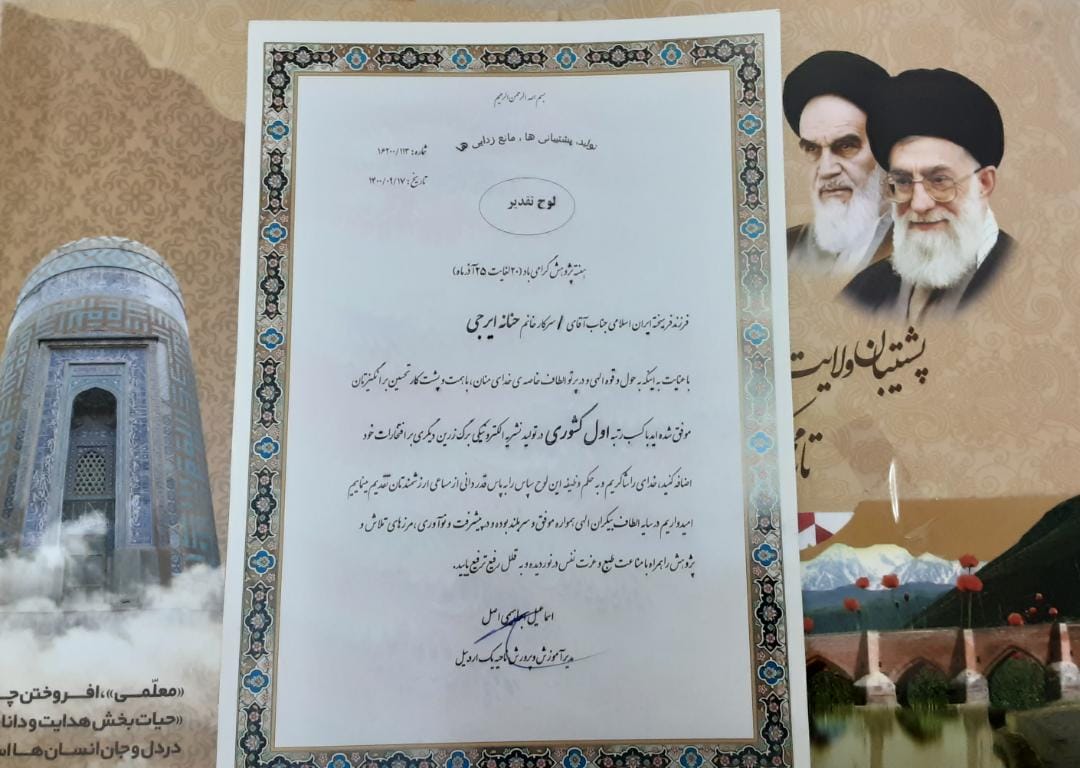 بسم الله الرحمن الرحیم
تولید، پشتیبانی ها، مانع زدایی ها
شماره: ۱۶۲۰۰/۱۱۳
تاریخ: ۱۴۰۰/۰۹/۱۷
لوح تقدیر
هفته پژوهش گرامی باد (۲۰ لغایت ۲۵ آذر ماه)
فرزند فرهیخته ایران اسلامی جناب آقای / سرکار خانم حنانه ایرجی
با عنایت به اینکه به حول و قوه الهی و در پرتو الطاف خاصه ی خدای منان، با همت و پشت کار تحسین بر انگیزتان
موفق شده اید با کسب رتبه اول کشوری در تولید نشریه الکترونیکی برگ زرین دیگری بر افتخارات خود
اضافه کنید، خدای را شاکریم و به حکم وظیفه این لوح سپاس را به پاس قدردانی از مساعی ارزشمندتان تقدیم می‌نماییم
امیدواریم در سایه الطاف بیکران الهی همواره موفق و سربلند بوده و در پیشرفت و نوآوری، مرزهای تلاش و
پژوهش را همراه با مناعت طبع و عزت نفس در نوردیده و به قلل رفیع ترفیع یابید.
اسماعیل اصل
مدیر آموزش و پرورش ناحیه یک اردبیل
پشتیبان ولایت
تا
«معلّمی»، افروختن چ
«حیات بخش هدایت و دانا
در دل و جان انسان ها اس